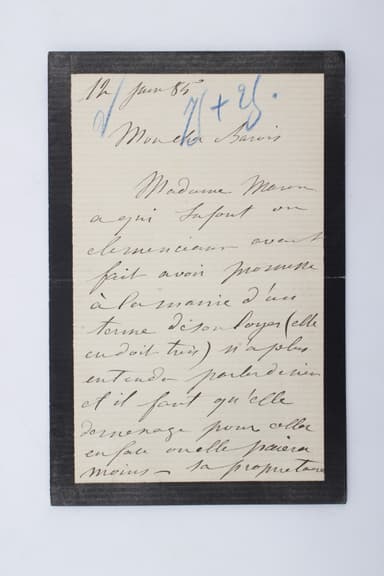 12 juin 85
2/ 75 + 25.
Mon cher Barois
Madame Maron
a qui Lafont ou
clemenceau avait
fait avoir promesse
à la mairie d'un
terme de son loyer (elle
en doit trois) n'a plus
entendu parler de rien
et il faut qu'elle
demenage pour aller
en face ou elle paiera
moins — sa propretaire